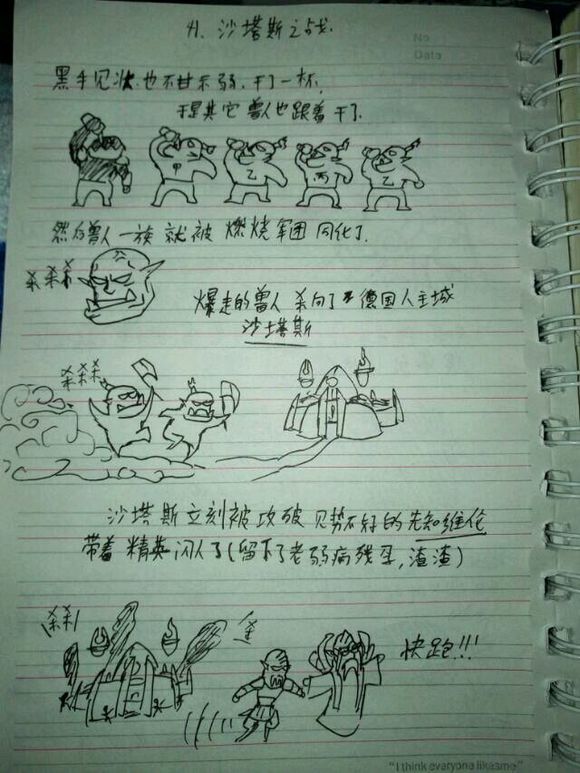 41. 沙塔斯之战
No
Data
黑手见状也不甘示弱,干了一杯,
于是其它兽人也跟着干了.
甲
乙
丙
乙
然后兽人一族就被燃烧军团同化了.
杀杀杀
爆走的兽人杀向了德国人主城
沙塔斯
杀杀杀
沙塔斯立刻被攻破 见势不好的先知维伦
带着精英闪人了(留下了老弱病残孕,渣渣)
杀杀!
杀
快跑!!!
"I think everyone likesme"